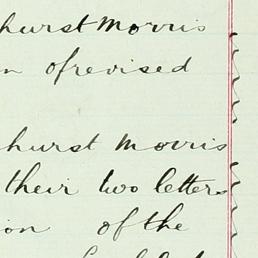 hurst Morris
n of revised
hurst Morris
their two letters
ion of the